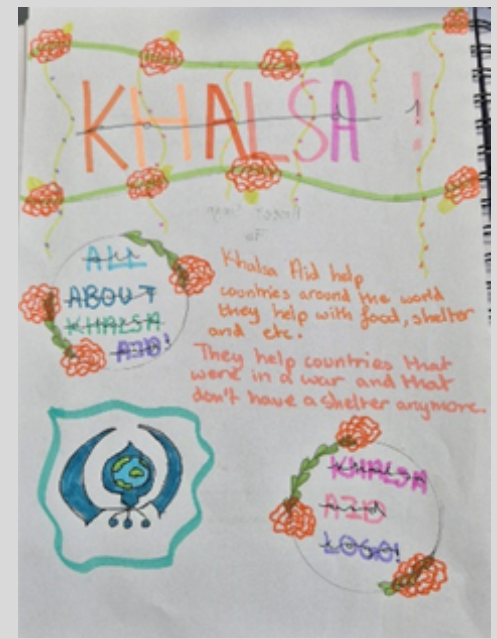 KHALSA !
ALL
ABOUT
KHALSA
AID!
Khalsa Aid help
countries around the world
they help with food, shelter
and etc.
They help countries that
were in a war and that
don't have a shelter anymore.
KHALSA
AID
LOGO!